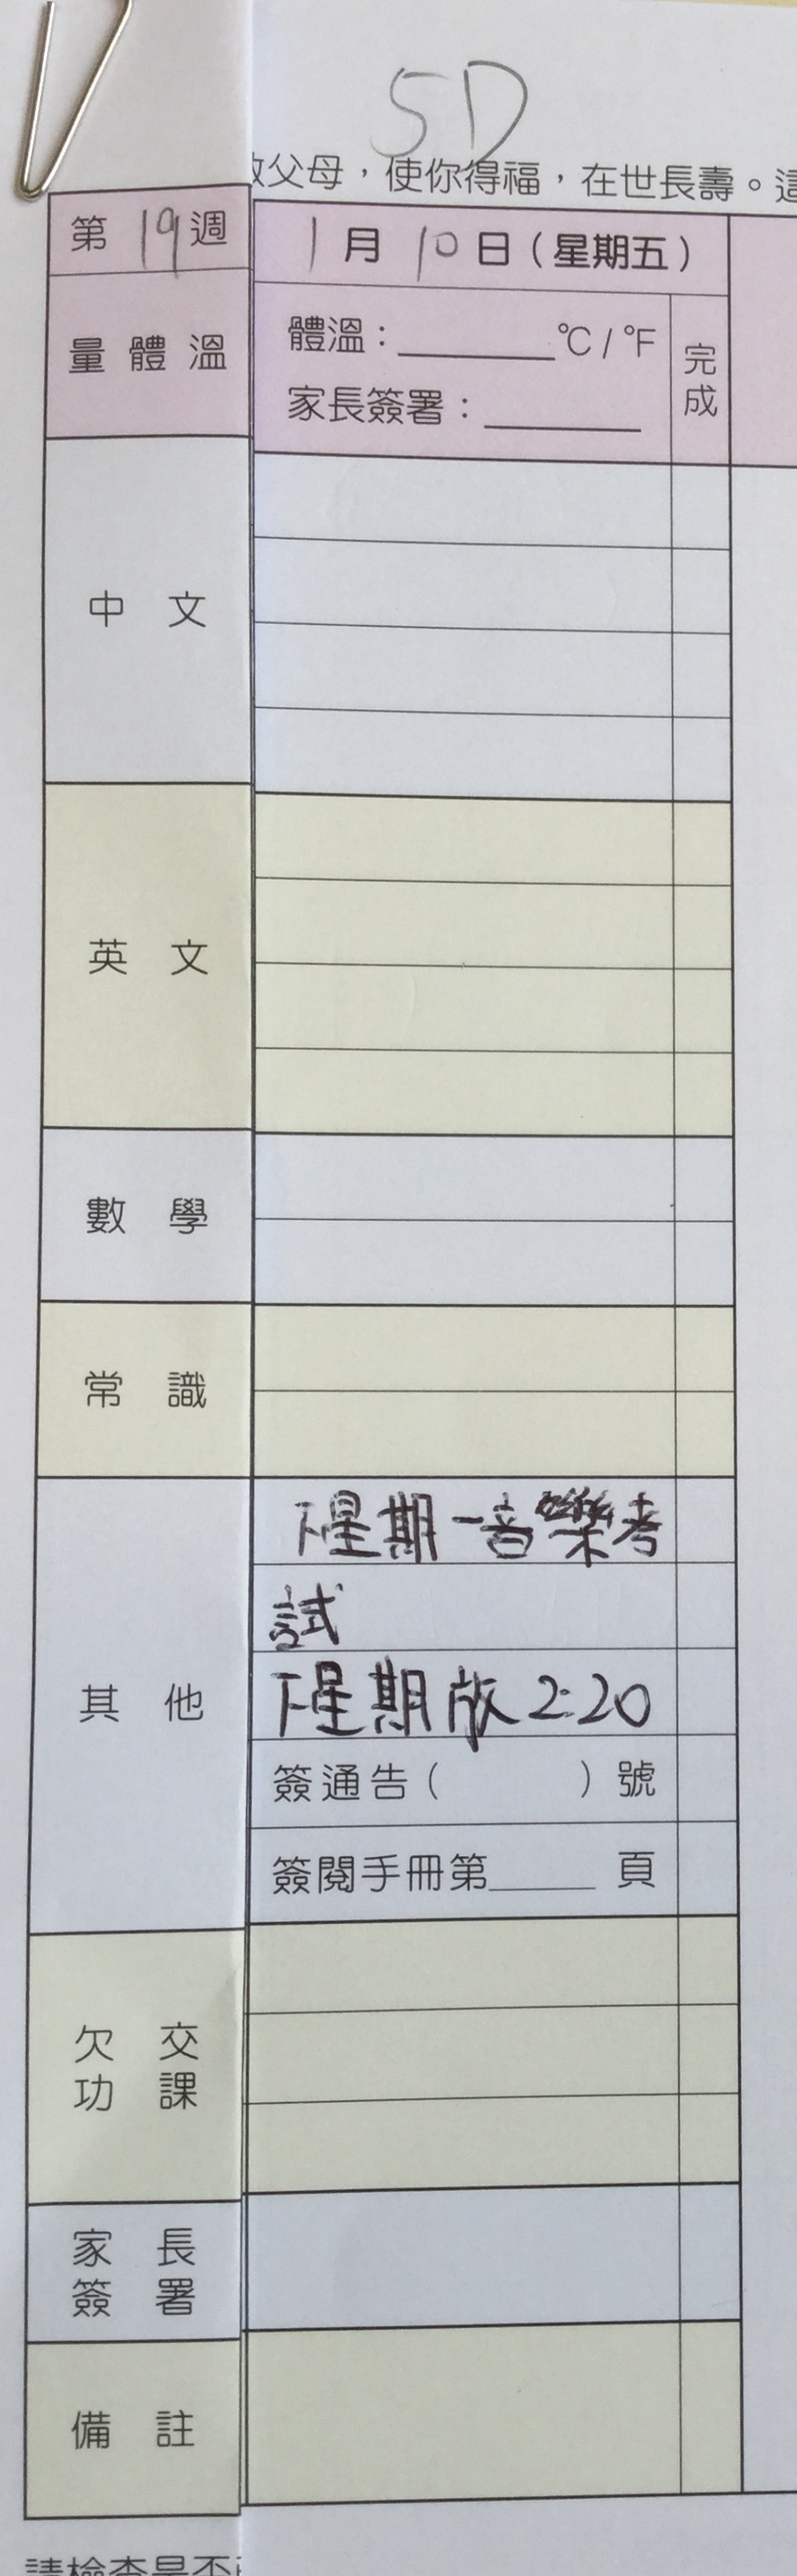 5D
父母，使你得福，在世長壽。這
第 19 週
1 月 10 日（星期五）
量體溫
體溫：______℃ / ℉
家長簽署：______
完成
中文
英文
數學
常識
其他
下星期一音樂考
試
下星期放2:20
簽通告（ ）號
簽閱手冊第______頁
欠交
功課
家長
簽署
備註
請檢查是否